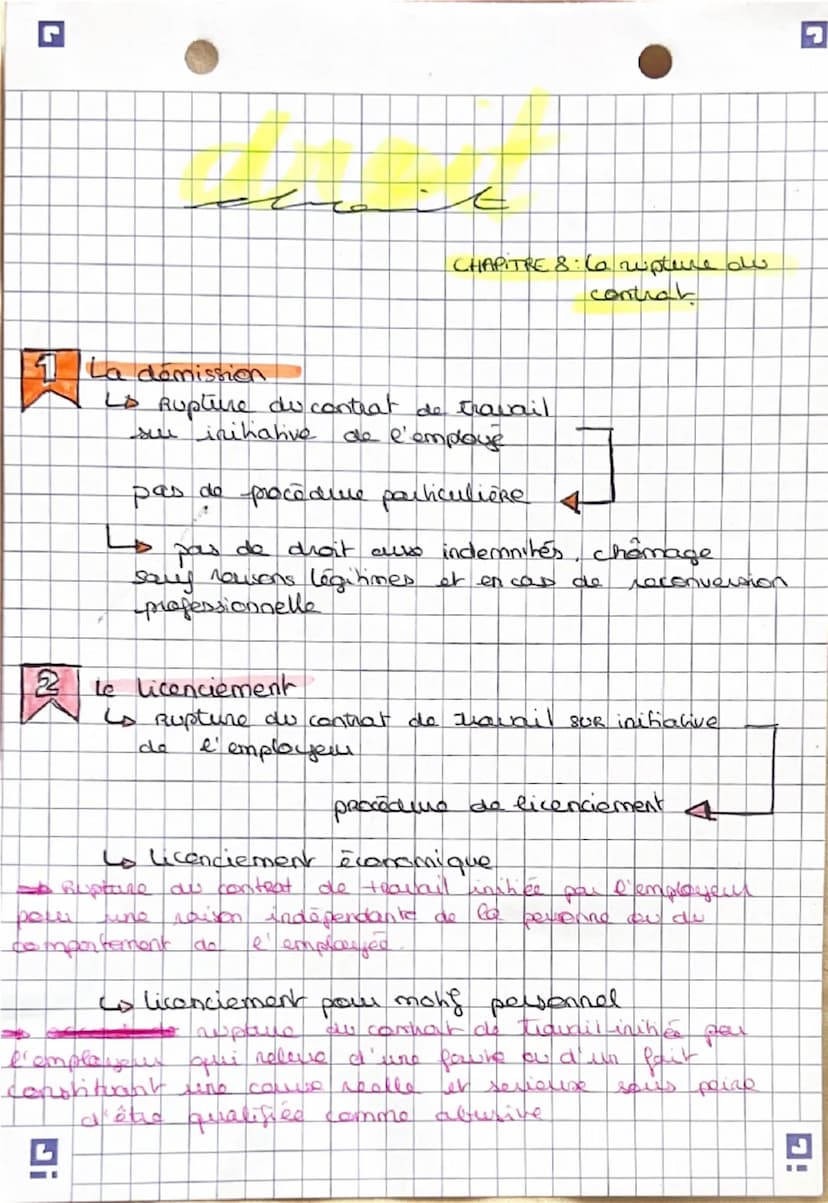 droit
CHAPITRE 8 : La rupture du
contrat.
1 La démission
↳ Rupture du contrat de travail
sur initiative de l'employé
pas de procédure particulière
↳ pas de droit aux indemnités, chômage
sauf raisons légitimes et en cas de reconversion
professionnelle
2 Le licenciement
↳ Rupture du contrat de travail sur initiative
de l'employeur
procédure de licenciement
↳ licenciement économique
→ Rupture du contrat de travail initiée par l'employeur
pour une raison indépendante de la personne ou du
comportement de l'employée.
↳ licenciement pour motif personnel
→ rupture du contrat de travail initiée par
l'employeur qui relève d'une faute ou d'un fait
constituant une cause réelle et serieuse sous peine
d'être qualifiée comme abusive